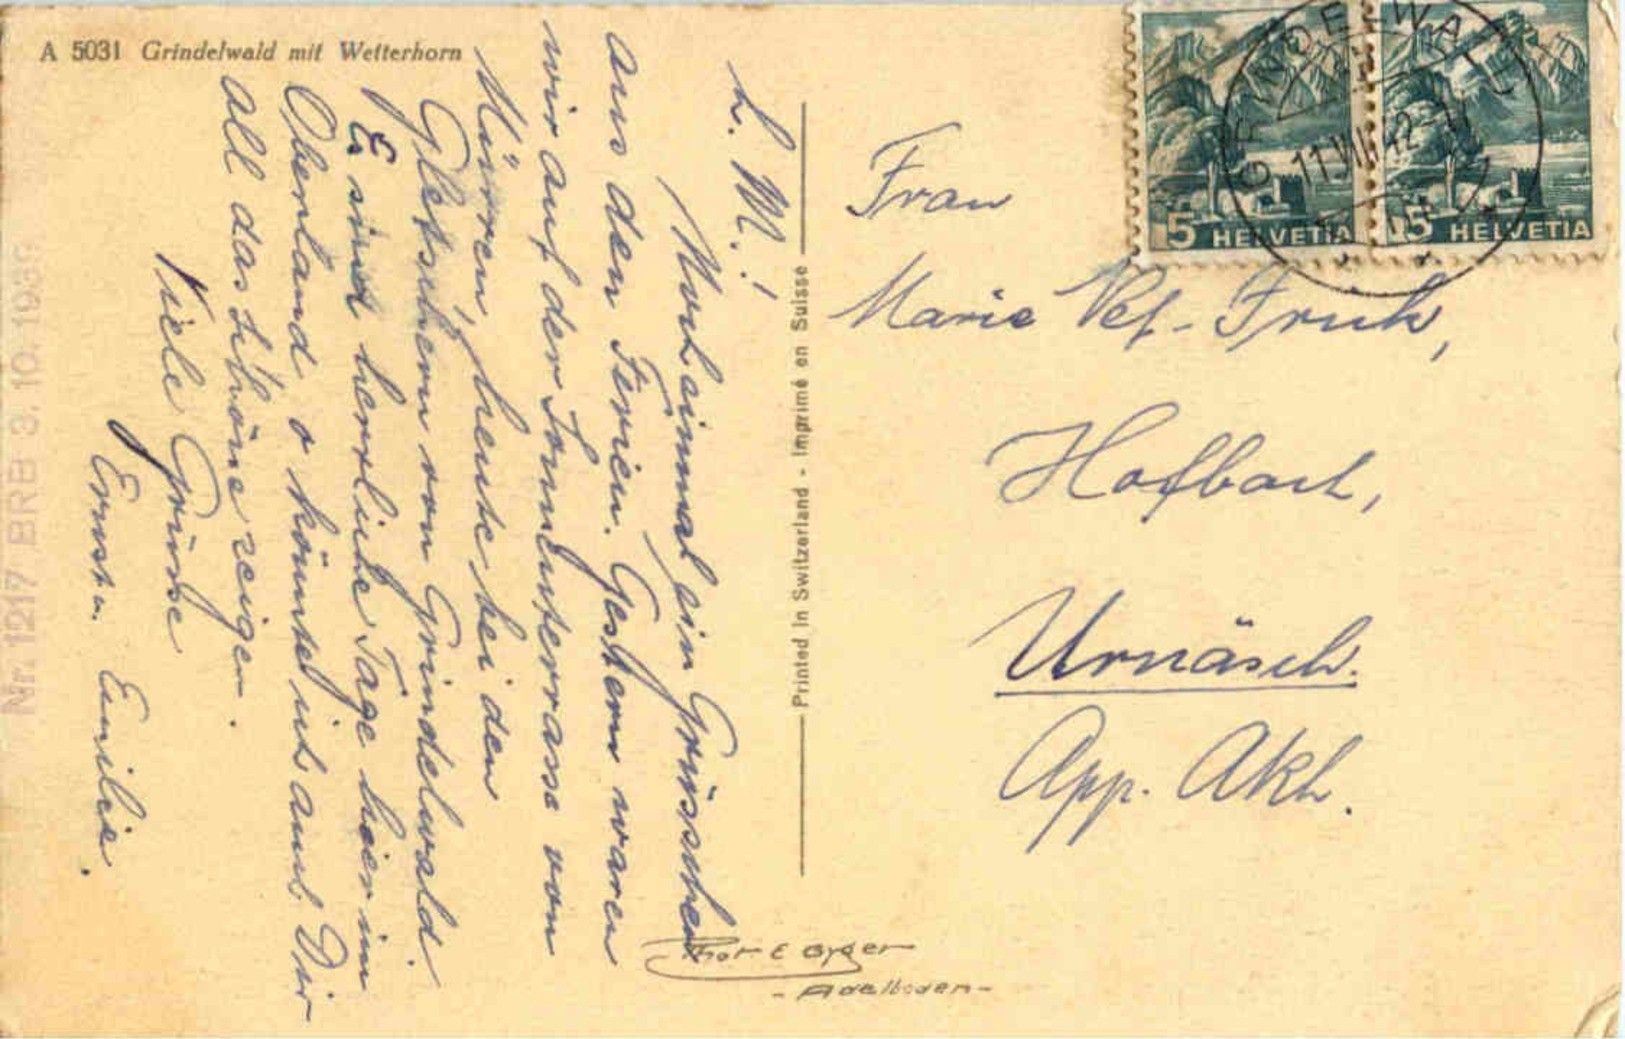 A 5031 Grindelwald mit Wetterhorn
L. M.!
Noch einmal ein Grüsschen
aus den Ferien. Gestern waren
wir auf der Sonnenterrasse von
Mürren, heute bei den
Gletschern von Grindelwald.
Es sind herrliche Tage hier im
Oberland o könnte ich auch Dir
all das Schöne zeigen.
Viele Grüsse
Ernst u. Emilie.
Nr. 1217 BRB 3. 10. 1939
Printed in Switzerland - Imprimé en Suisse
Phot E Gyger
- Adelboden -
GRINDELWALD
11.VIII.42-11
5 HELVETIA
5 HELVETIA
Frau
Marie Frueh,
Hofbach,
Urnäsch.
App. ARh.